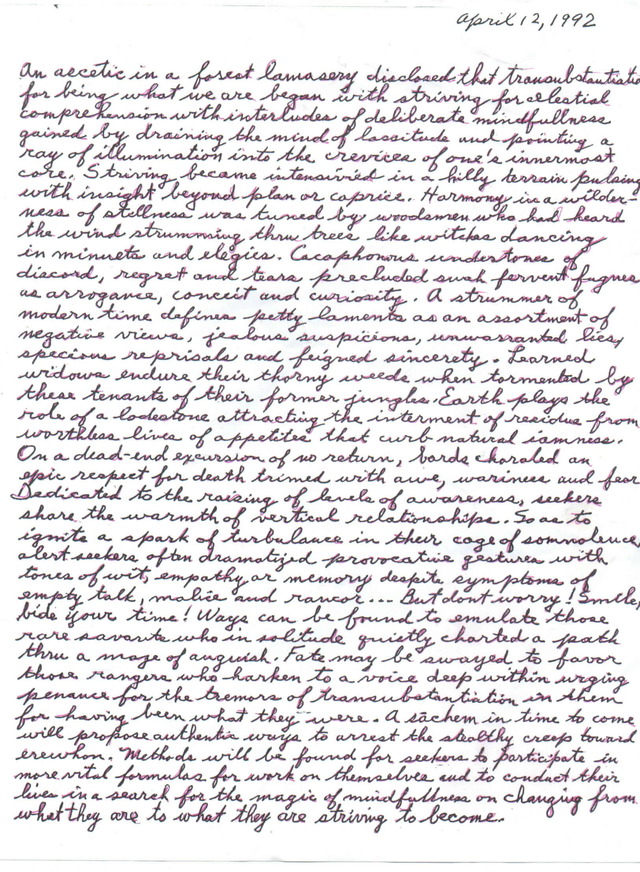 April 12, 1992
An accetic in a forest lamasery disclosed that transubstantiatio
for being what we are began with striving for celestial
comprehension with interludes of deliberate mindfullness
gained by draining the mind of lassitude and pointing a
ray of illumination into the crevices of one's innermost
core. Striving became intensivied in a hilly terrain pulsing
with insight beyond plan or caprice. Harmony in a wilder-
ness of stillness was tuned by woodsmen who had heard
the wind strumming thru trees like witches dancing
in minuets and elegies. Cacaphonous undertones of
discord, regret and tears precluded such fervent fugues
as arrogance, conceit and curiosity. A strummer of
modern time defines petty laments as an assortment of
negative views, jealous suspicions, unwarranted lies,
specious reprisals and feigned sincerety. Learned
widows endure their thorny weeds when tormented by
these tenants of their former jungles. Earth plays the
role of a lodestone attracting the interment of residue from
worthless lives of appetites that curb natural iamness.
On a dead-end excursion of no return, bards chorated an
epic respect for death trimed with awe, wariness and fear.
Dedicated to the raising of levels of awareness, seekers
share the warmth of vertical relationships. So as to
ignite a spark of turbulance in their cage of somnolence,
alert seekers often dramatized provocative gestures with
tones of wit, empathy or memory despite symptoms of
empty talk, malice and rancor... But dont worry! Smile,
bide your time! Ways can be found to emulate those
rare savants who in solitude quietly charted a path
thru a maze of anguish. Fate may be swayed to favor
those rangers who harken to a voice deep within urging
penance for the tremors of transubstantiation in them
for having been what they were. A sachem in time to come
will propose authentic ways to arrest the stealthy creep toward
erewhon. Methods will be found for seekers to participate in
more vital formulas for work on themselves and to conduct their
lives in a search for the magic of mindfullness on changing from
what they are to what they are striving to become.